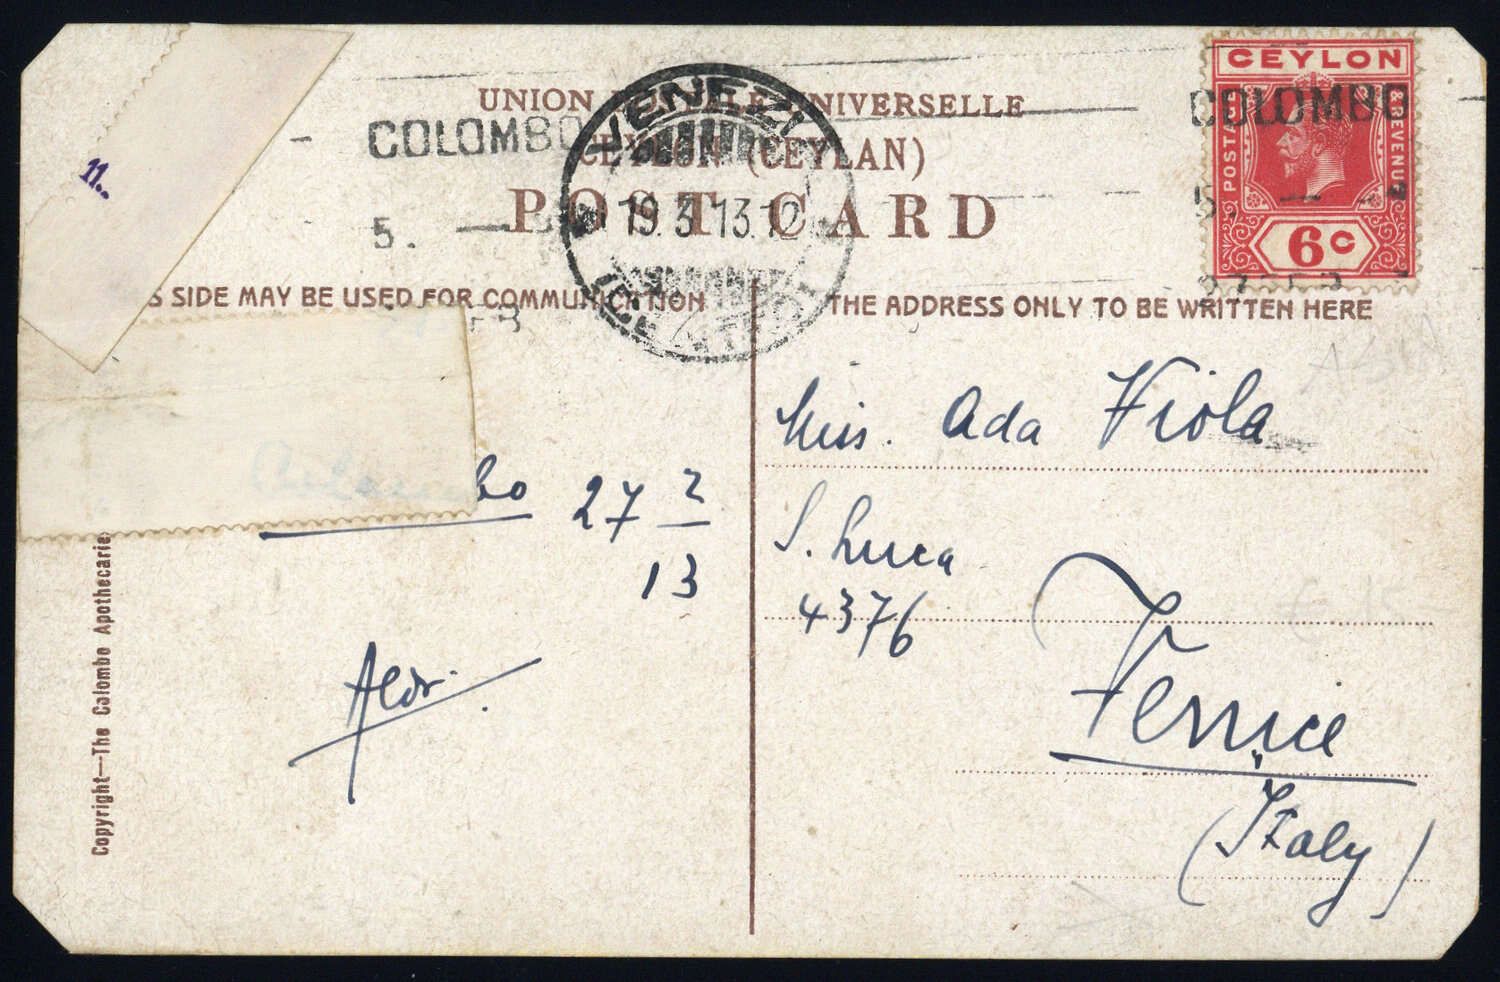 UNION POSTALE UNIVERSELLE
CEYLON (CEYLAN)
POST CARD
COLOMBO
5.
VENEZI
19.3 13.12
CEYLON
POSTAGE & REVENUE
COLOMBO
6c
11.
S SIDE MAY BE USED FOR COMMUNICATION
THE ADDRESS ONLY TO BE WRITTEN HERE
bo 27 2
13
Miss. Ada Viola
S. Luca
4376
Venice
(Italy)
Copyright—The Colombo Apothecarie